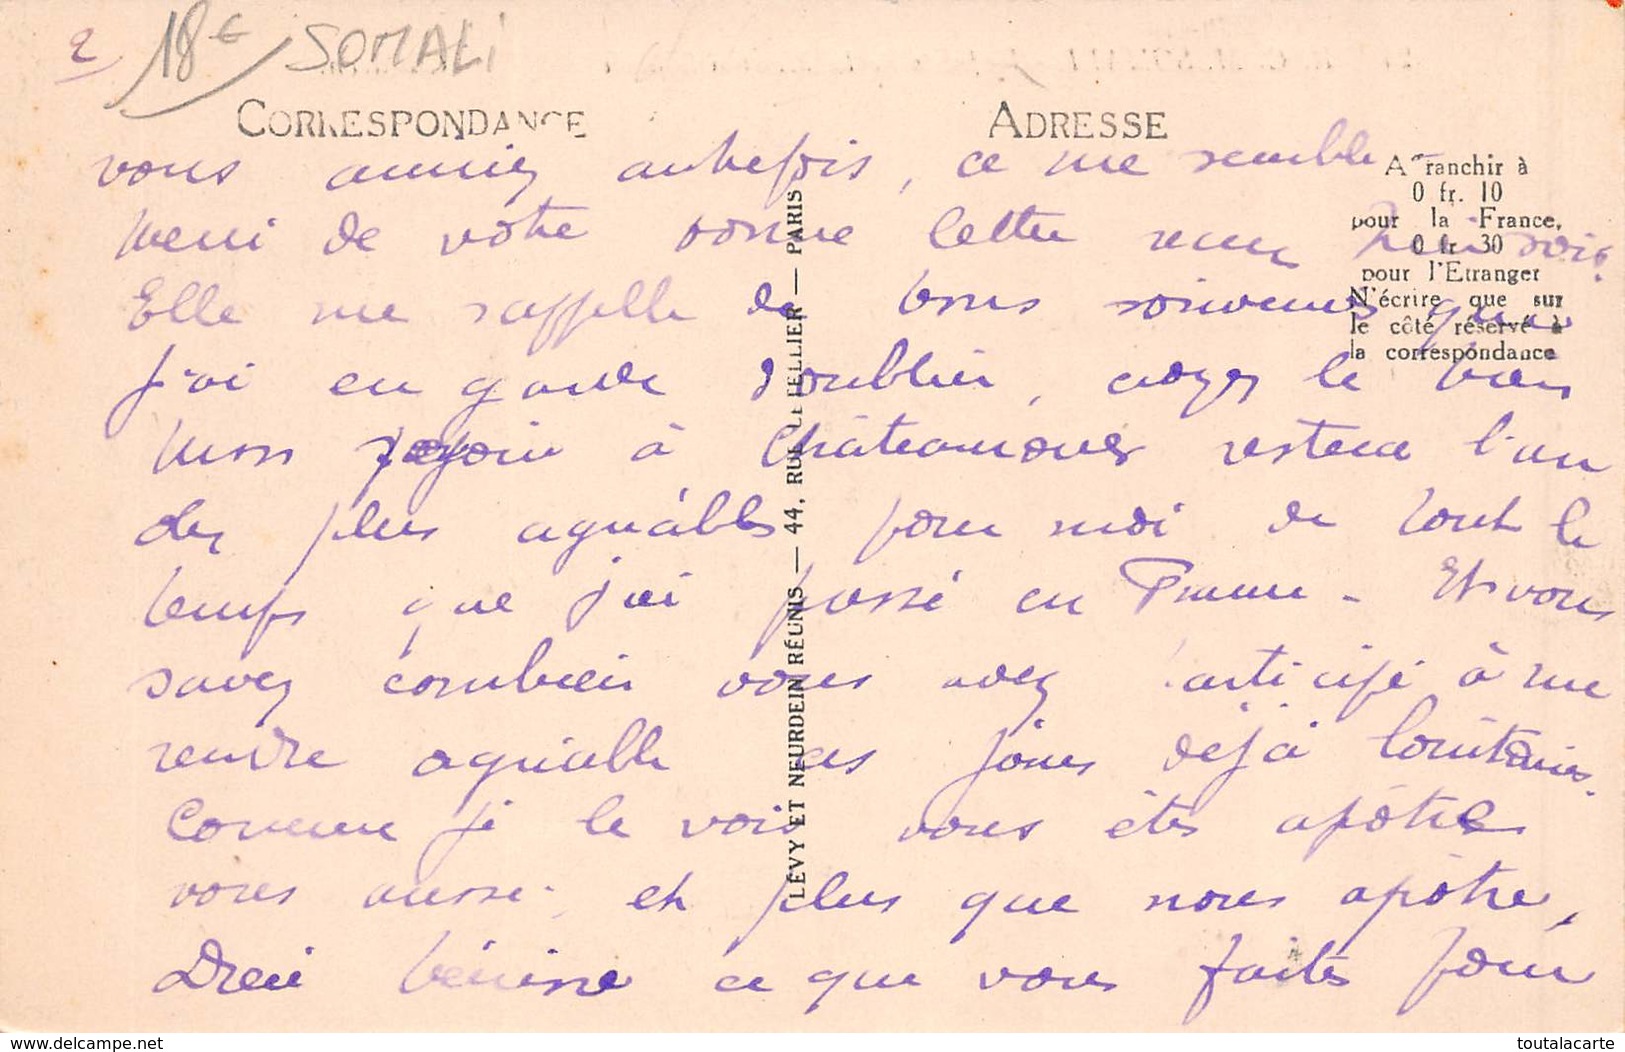 2 18€ SOMALI
CORRESPONDANCE
ADRESSE
vous aimiez autrefois, ce me semble
Merci de votre bonne lettre reçue hier soir.
Elle me rappelle de bons souvenirs que
j'ai en garde d'oublier, croyez le bien
Mon séjour à Châteauroux restera l'un
des plus agréables pour moi de tout le
temps que j'ai passé en France - Et vous
savez combien vous avez participé à me
rendre agréable ces jours déjà lointains.
Comme je le vois vous êtes apôtre
vous aussi, et plus que nous apôtre,
Dieu bénisse ce que vous faites pour
Affranchir à
0 fr. 10
pour la France,
0 fr. 30
pour l'Etranger
N'écrire que sur
le côté réservé à
la correspondance
LÉVY ET NEURDEIN RÉUNIS — 44, RUE LETELLIER — PARIS
delcampe.net
toutalacarte